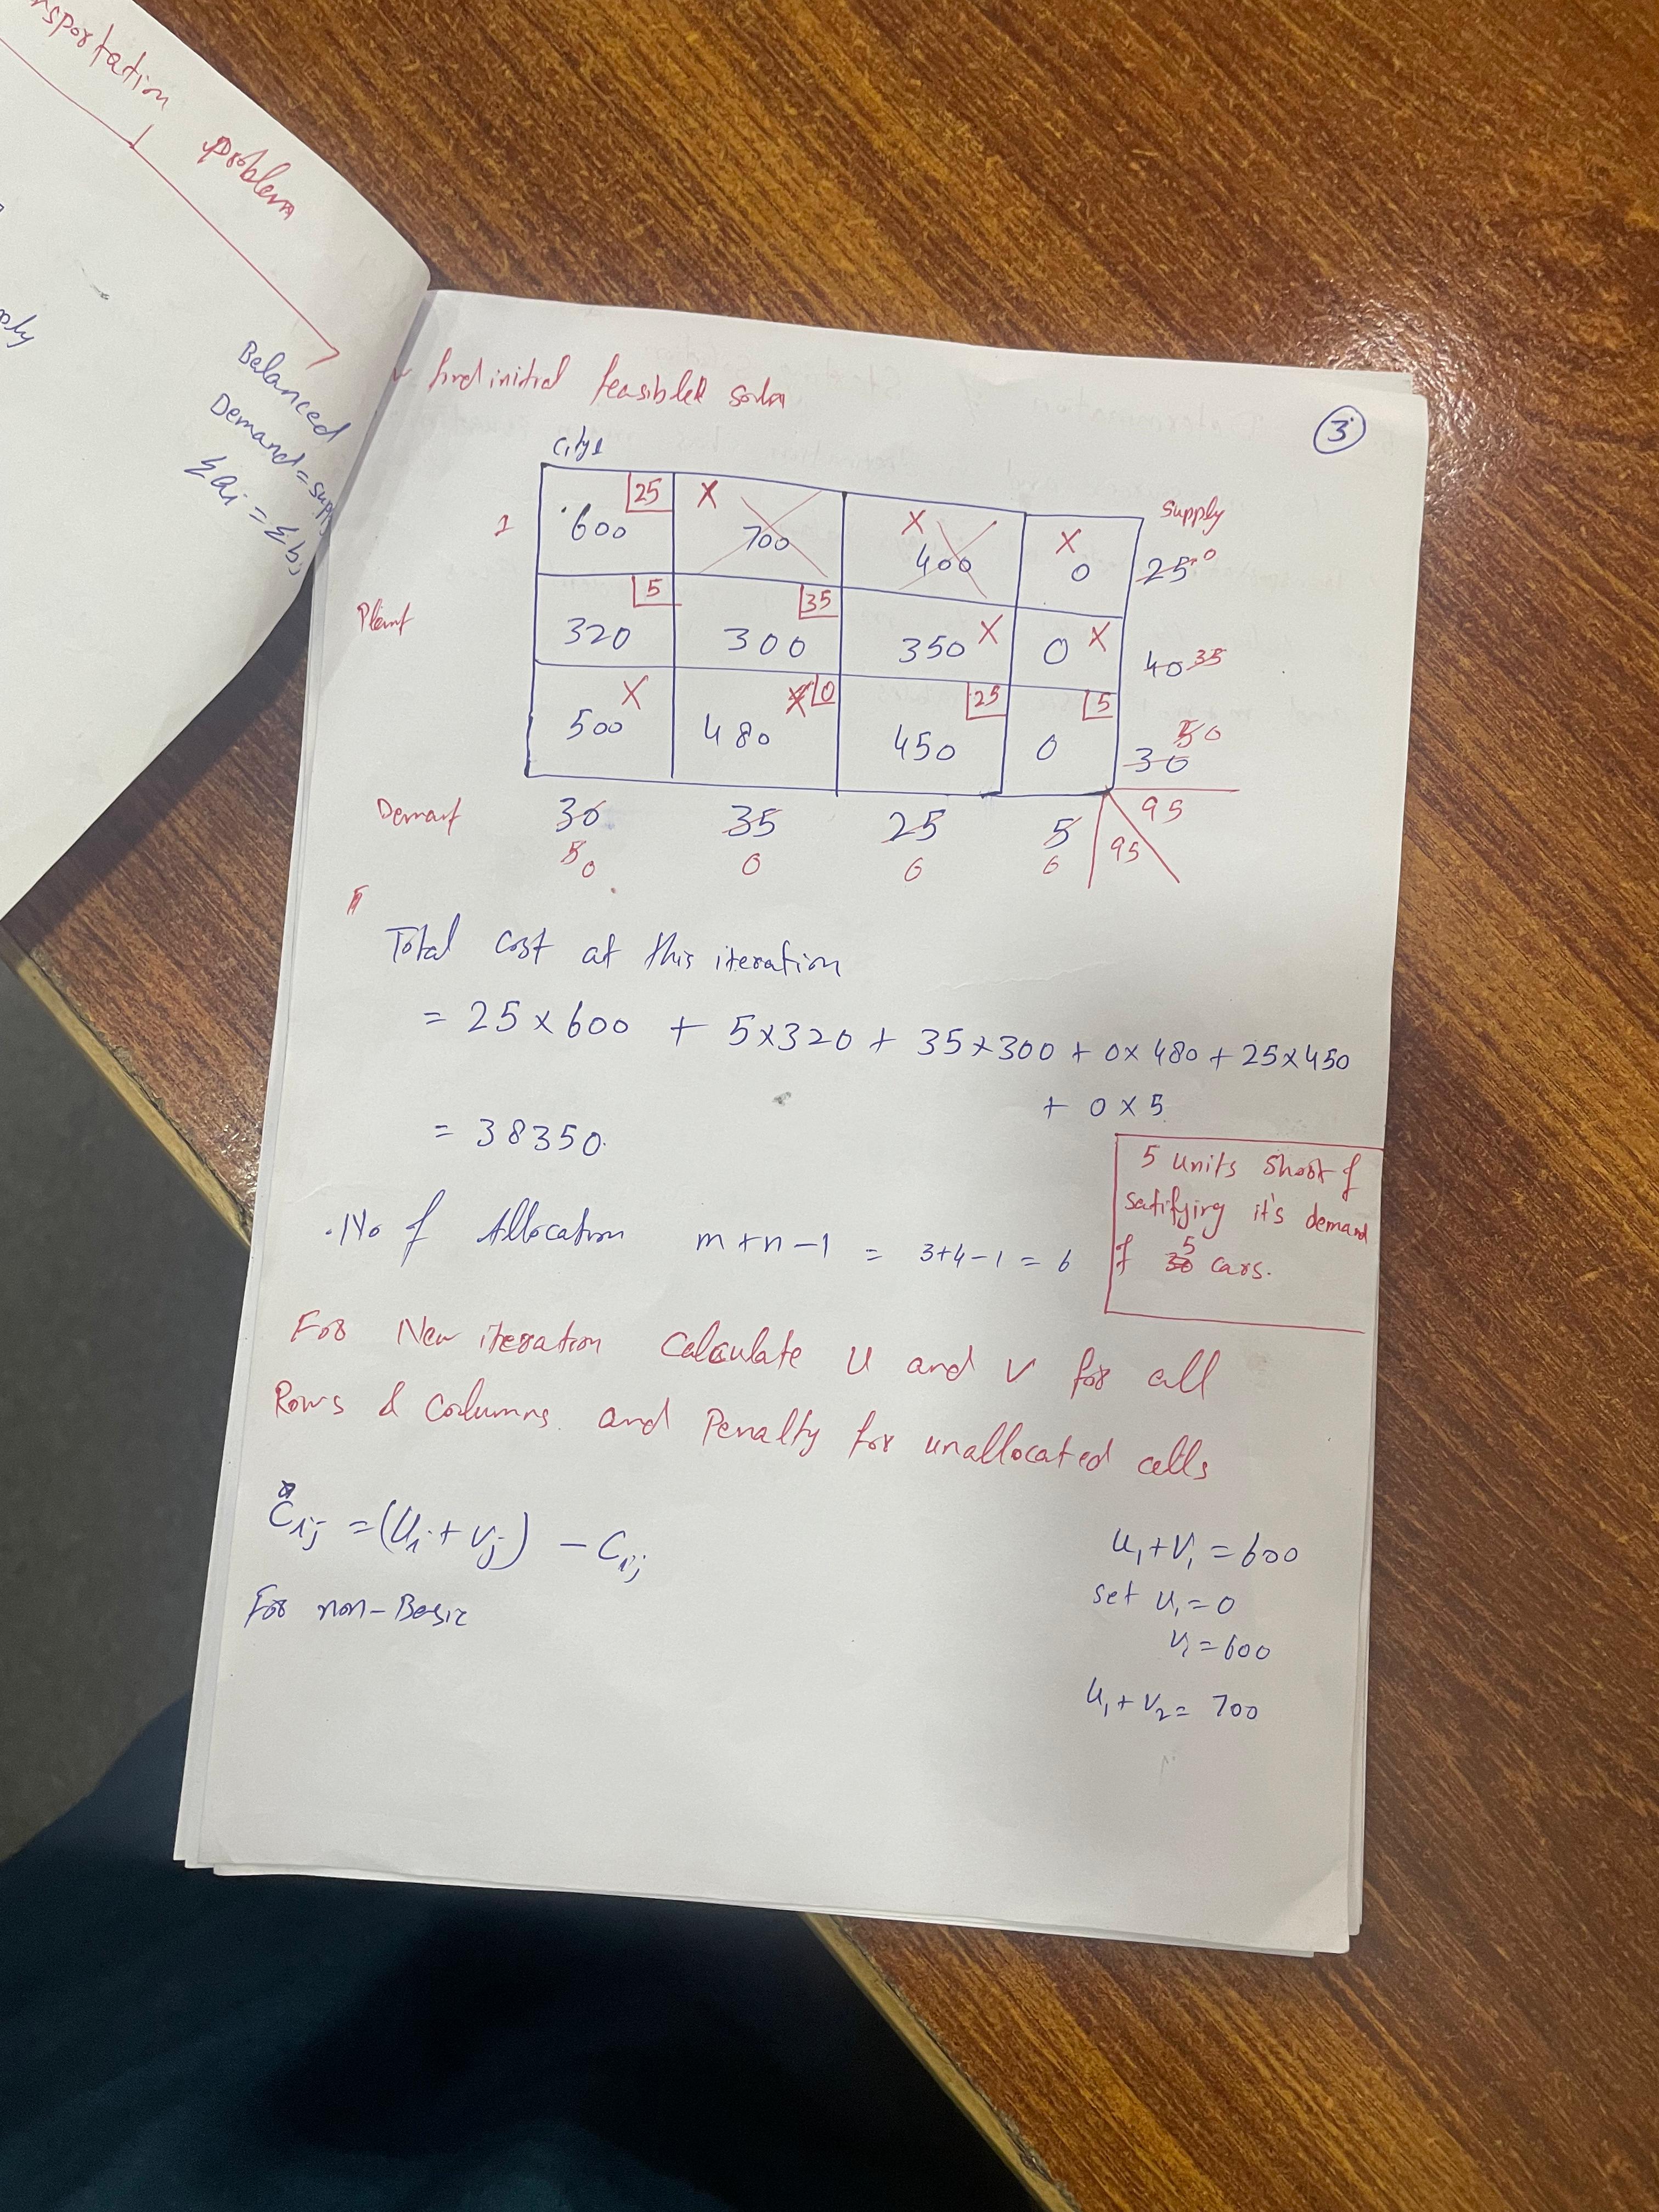 problem
Balanced
Demand = supp
Σai = Σbj
find initial feasible soln
3
City
Supply
1
25
600
X
700
X
400
X
0
25 0
Plant
5
320
35
300
350 X
0 X
40 35
X
500
X 0
480
25
450
5
0
5 0
30
Demant
30
35
25
5
95
5 0
0
0
0
95
Total cost at this iteration
= 25 x 600 + 5 x 320 + 35 x 300 + 0 x 480 + 25 x 450
+ 0 x 5
= 38350.
No of Allocation m+n-1 = 3+4-1 = 6
5 units short of
satifying it's demand
of 5 cars.
For New iteration Calculate U and V for all
Rows & Columns. and Penalty for unallocated cells
Cij = (Ui + Vj) - Cij
For non-Basic
u1 + v1 = 600
set u1 = 0
v1 = 600
u1 + v2 = 700